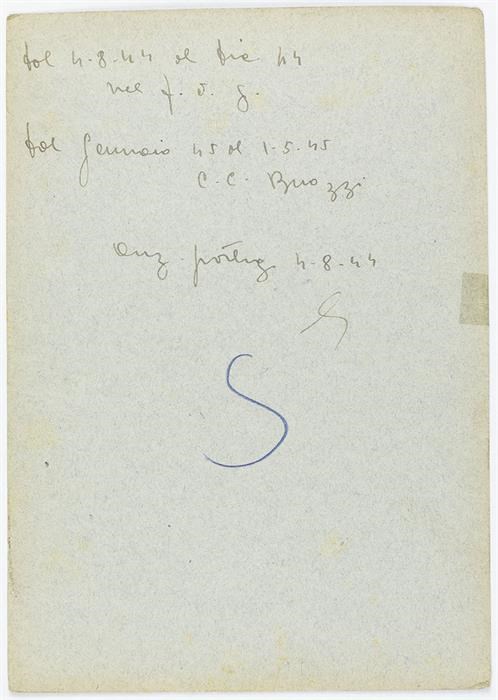 dal 4-8-44 al Dic 44
nel f. d. g.
dal Gennaio 45 al 1-5-45
C. C. Buozzi
anz. partig 4-8-44
S